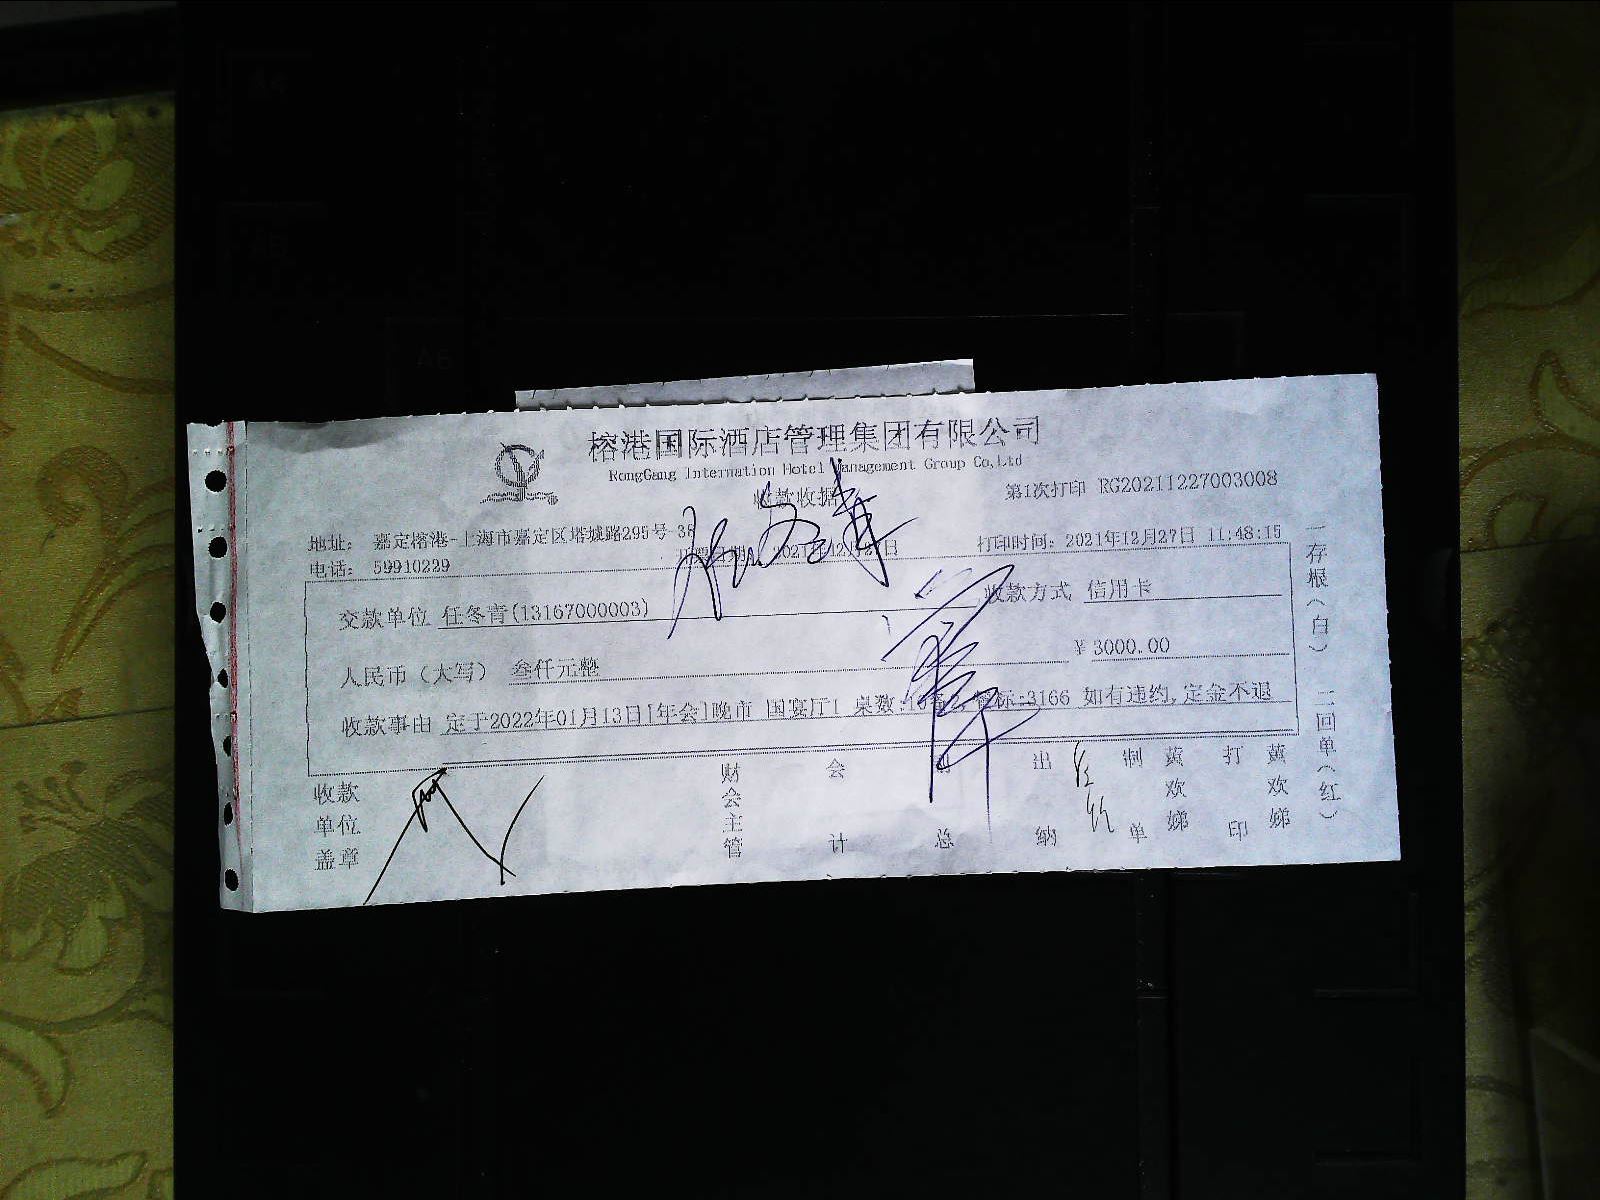 榕港国际酒店管理集团有限公司
RongGang Internation Hotel Management Group Co,Ltd
收款收据
第1次打印 RG20211227003008
地址: 嘉定榕港-上海市嘉定区塔城路295号 38
电话: 59910229
开票日期: 2021年12月27日
打印时间: 2021年12月27日 11:48:15
交款单位 任冬青(13167000003)
收款方式 信用卡
人民币（大写） 叁仟元整
¥ 3000.00
收款事由 定于2022年01月13日[年会]晚市 国宴厅1 桌数: 餐标:3166 如有违约,定金不退
收款单位盖章
财会主管
会计
总
出纳
制单
黄欢娣
打印
黄欢娣
一存根（白） 二回单（红）
A6